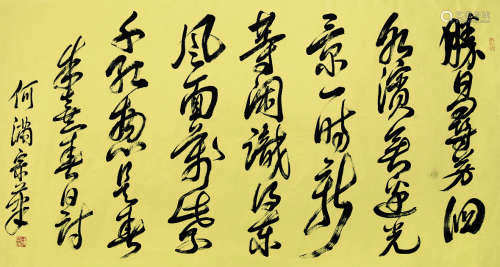 勝日尋芳泗
水濱無邊光
景一時新
等閑識得東
風面萬紫
千紅總是春
朱熹春日詩
何滿宗筆